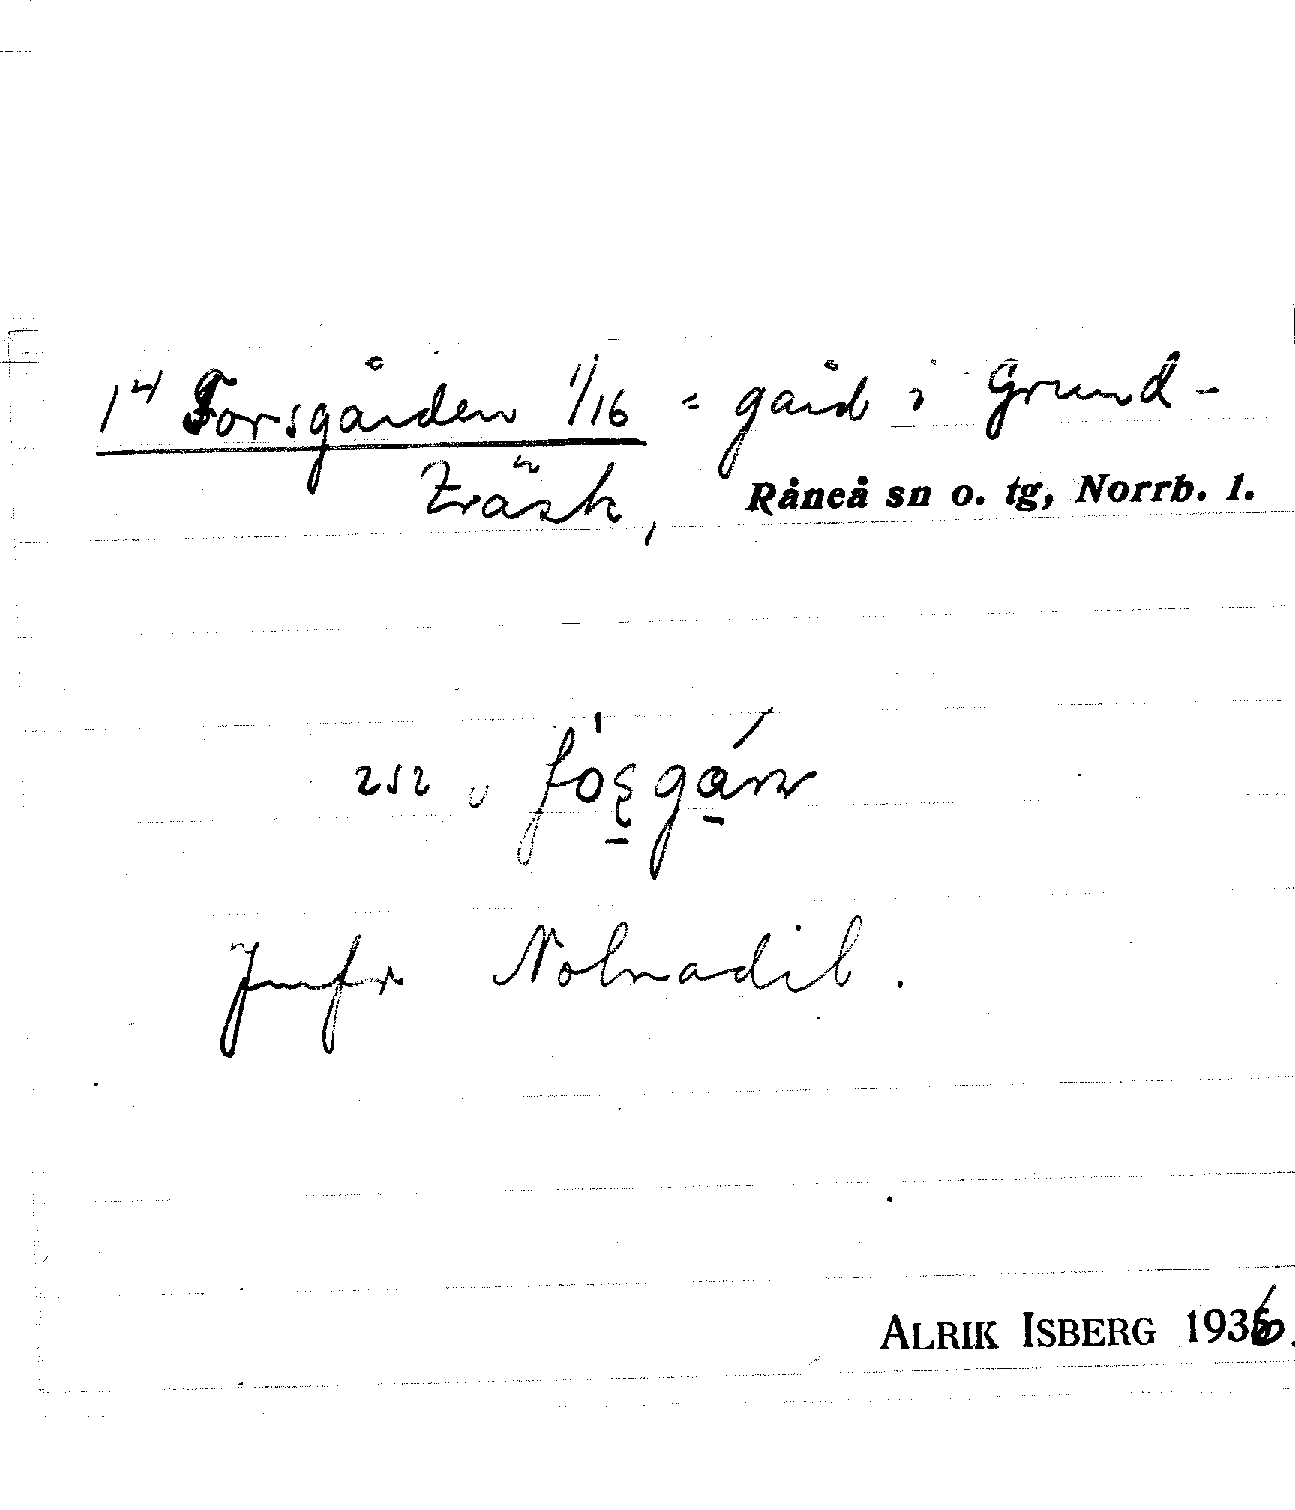 1⁴ Forsgården 1/16 = gård i Grund-
träsk, Råneå sn o. tg, Norrb. l.
Jmfr Nolnadil.
ALRIK ISBERG 1936.